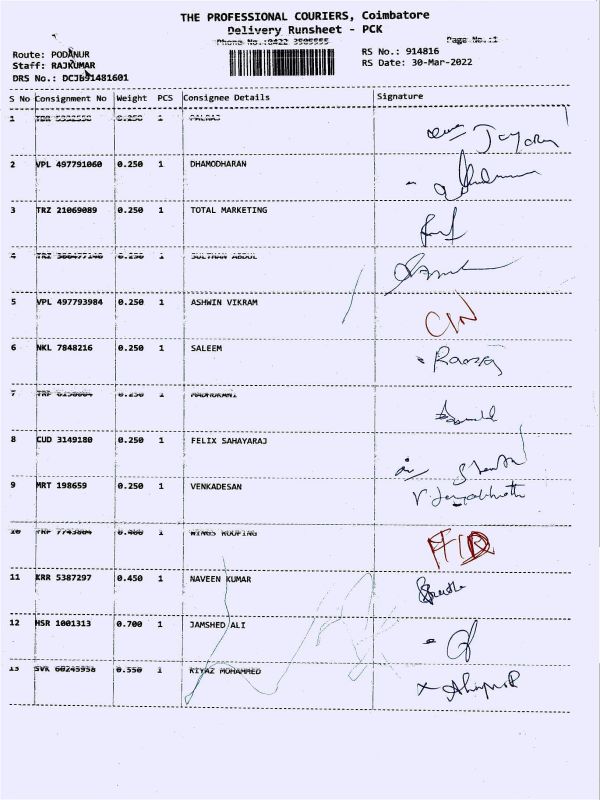 THE PROFESSIONAL COURIERS, Coimbatore
Delivery Runsheet - PCK
Phone No.:0422 3505555 Page No.:1
Route: PODANUR RS No.: 914816
Staff: RAJKUMAR RS Date: 30-Mar-2022
DRS No.: DCJ691481601
S No Consignment No Weight PCS Consignee Details Signature
1 0.250 1 PALRAJ
2 VPL 497791060 0.250 1 DHAMODHARAN
3 TRZ 21069089 0.250 1 TOTAL MARKETING
4 TRZ 0.250 1 SULTHAN ABDUL
5 VPL 497793984 0.250 1 ASHWIN VIKRAM
CIN
6 NKL 7848216 0.250 1 SALEEM
7 TRP 0.250 1 MADHUKANI
8 CUD 3149180 0.250 1 FELIX SAHAYARAJ
9 MRT 198659 0.250 1 VENKADESAN
10 TRP 0.400 1 WINGS ROOFING
11 KRR 5387297 0.450 1 NAVEEN KUMAR
12 HSR 1001313 0.700 1 JAMSHED ALI
13 SVR 60245958 0.550 1 RIYAZ MOHAMMED